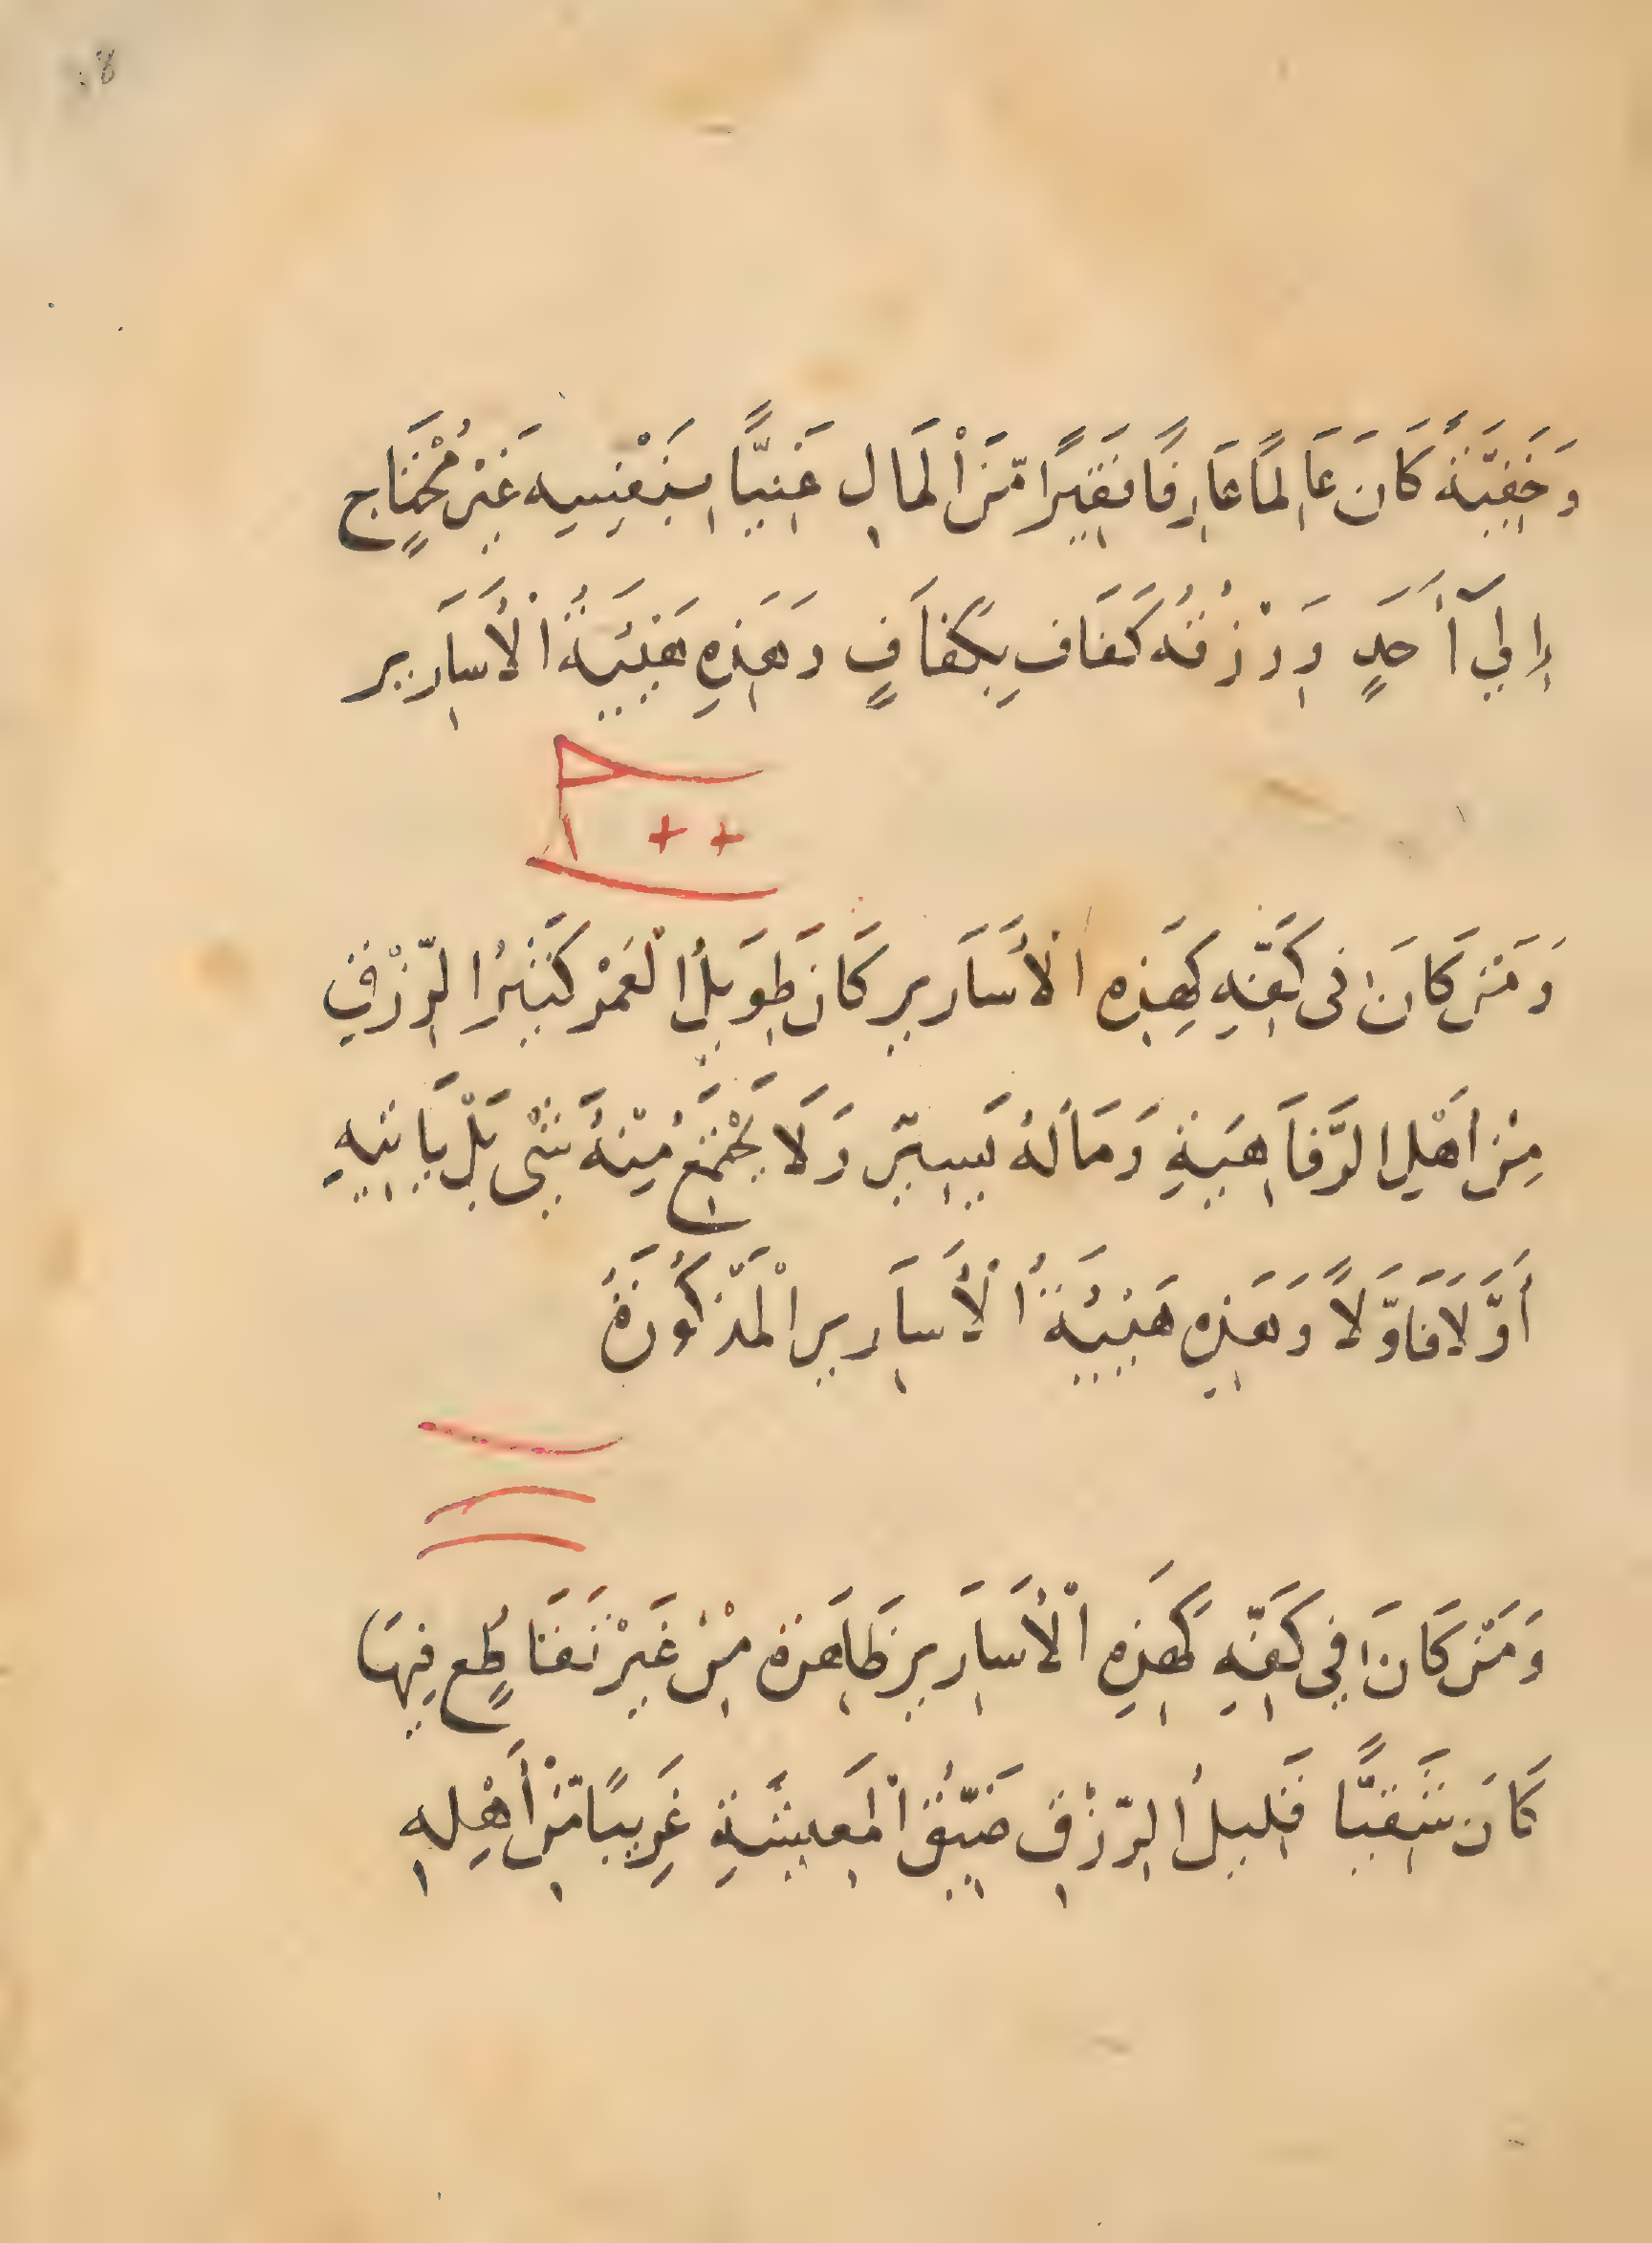 وَخَفِيَّةً كَانَ عَالِمًا عَارِفًا فَقِيرًا مِّنَ اْلمَالِ غَنِيًّا بِنَفْسِهِ غَيْرُ مُحْتَاجٍ
إِلَي أَحَدٍ وَرِزْقُهُ كَفَاف بِكَفَافٍ وَهَذِهِ هَيْئَةُ اْلأَسَارِير
وَمَنْ كَانَ فى كَفِّهِ كَهَذِهِ اْلأَسَارِير كَانَ طَوِيلُ اْلعُمْرِ كَثِيْرُ الرِّزْقِ
مِنْ أَهْلِ الرَّفَاهِيَةِ وَمَالُهُ يَسِيرٌ وَلَا يَجْتَمِعُ مِنْهُ شَىْ بَلْ يَاتِيهِ
أَوَّلَا فَاوَّلاً وَهَذِهِ هَيْئَةُ اْلأَسَارِير اْلمَذكُورَةُ
وَمَنْ كَانَ فِي كَفِّهِ كَهَذِهِ اْلأَسَارِير ظَاهِرَة مِنْ غَيْرِ تَقَاطُعٍ فِيهَا
كَانَ شَقِيًّا قَلِيلُ الرِّزْقِ ضَيِّقُ اْلمَعِيشَةِ غَرِيبًا مِّنْ أَهْلِهِ